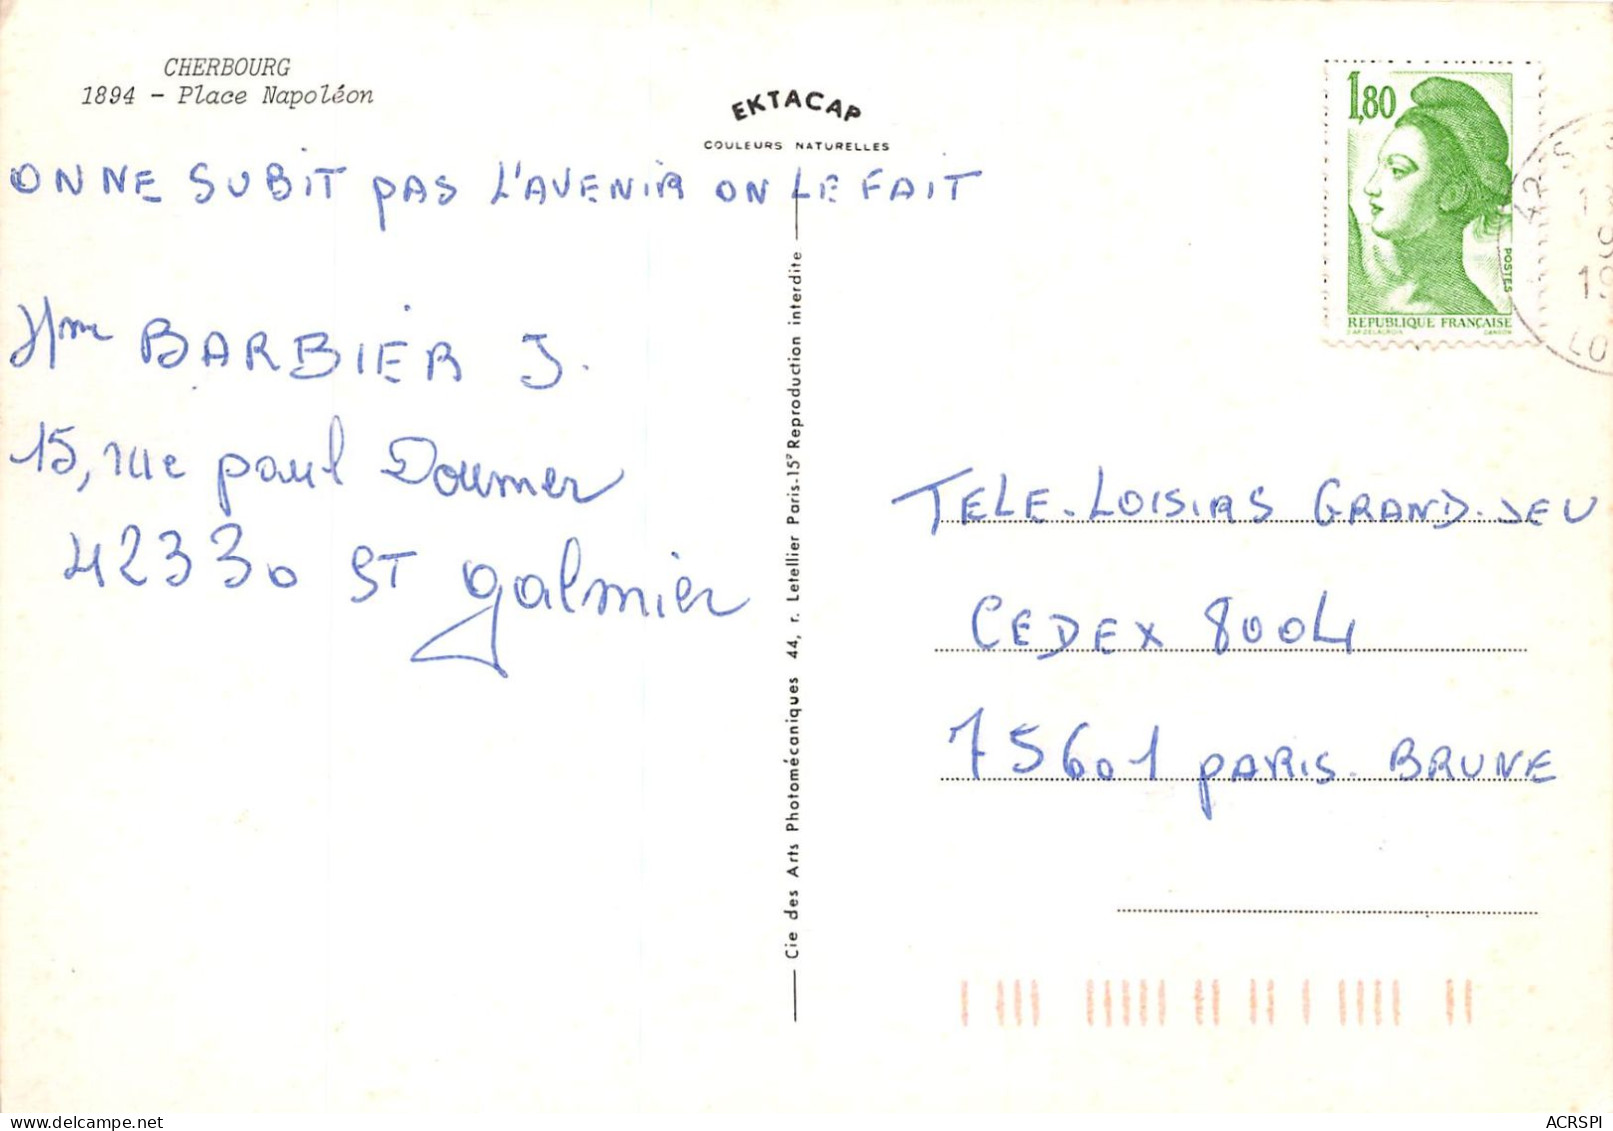 CHERBOURG
1894 - Place Napoléon
EKTACAP
COULEURS NATURELLES
1,80
POSTES
REPUBLIQUE FRANÇAISE
ON NE SUBIT PAS L'AVENIR ON LE FAIT
Mme BARBIER J.
15, rue paul Doumer
42330 ST galmier
Cie des Arts Photomécaniques 44, r. Letellier Paris-15e Reproduction interdite
TELE-LOISIRS GRAND-JEU
CEDEX 8004
75601 PARIS-BRUNE
www.delcampe.net
ACRSPI